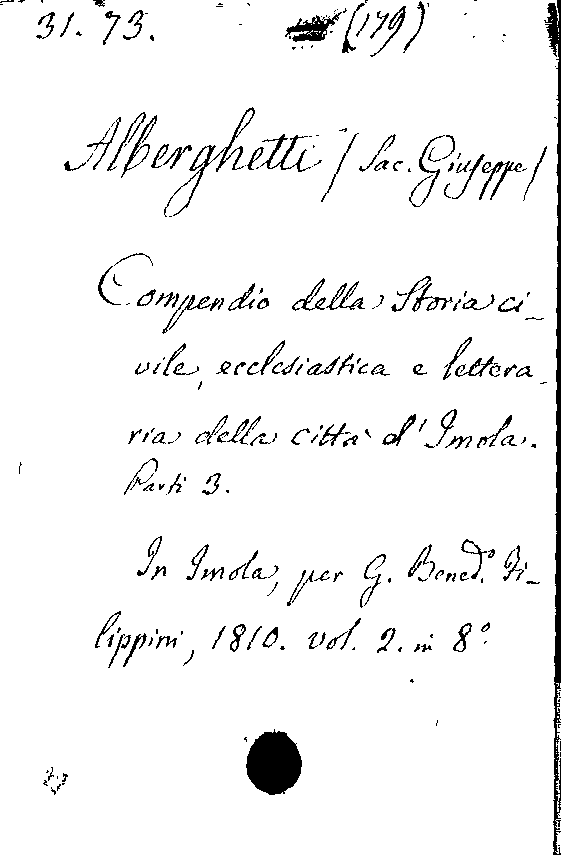 31. 73. (179)
Alberghetti / Sac. Giuseppe /
Compendio della Storia ci-
vile, ecclesiastica e lettera-
ria della città d' Imola.
Parti 3.
In Imola, per G. Bened.º Fi-
lippini, 1810. vol. 2. in 8º